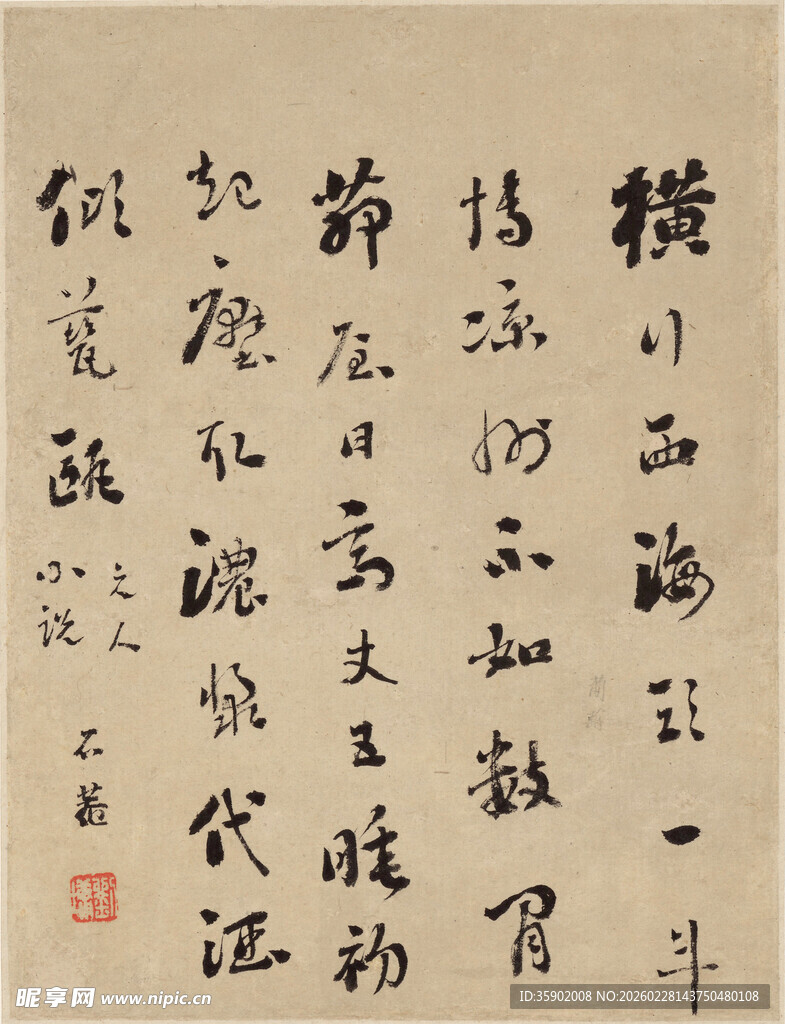 橫行西海頭一斗
愽涼州不如數間
茆屋日高丈五睡初
起壓取濃漿代酒
傾甕甌
元人
小説
石菴
昵享网 www.nipic.cn
ID:35902008 NO:20260228143750480108